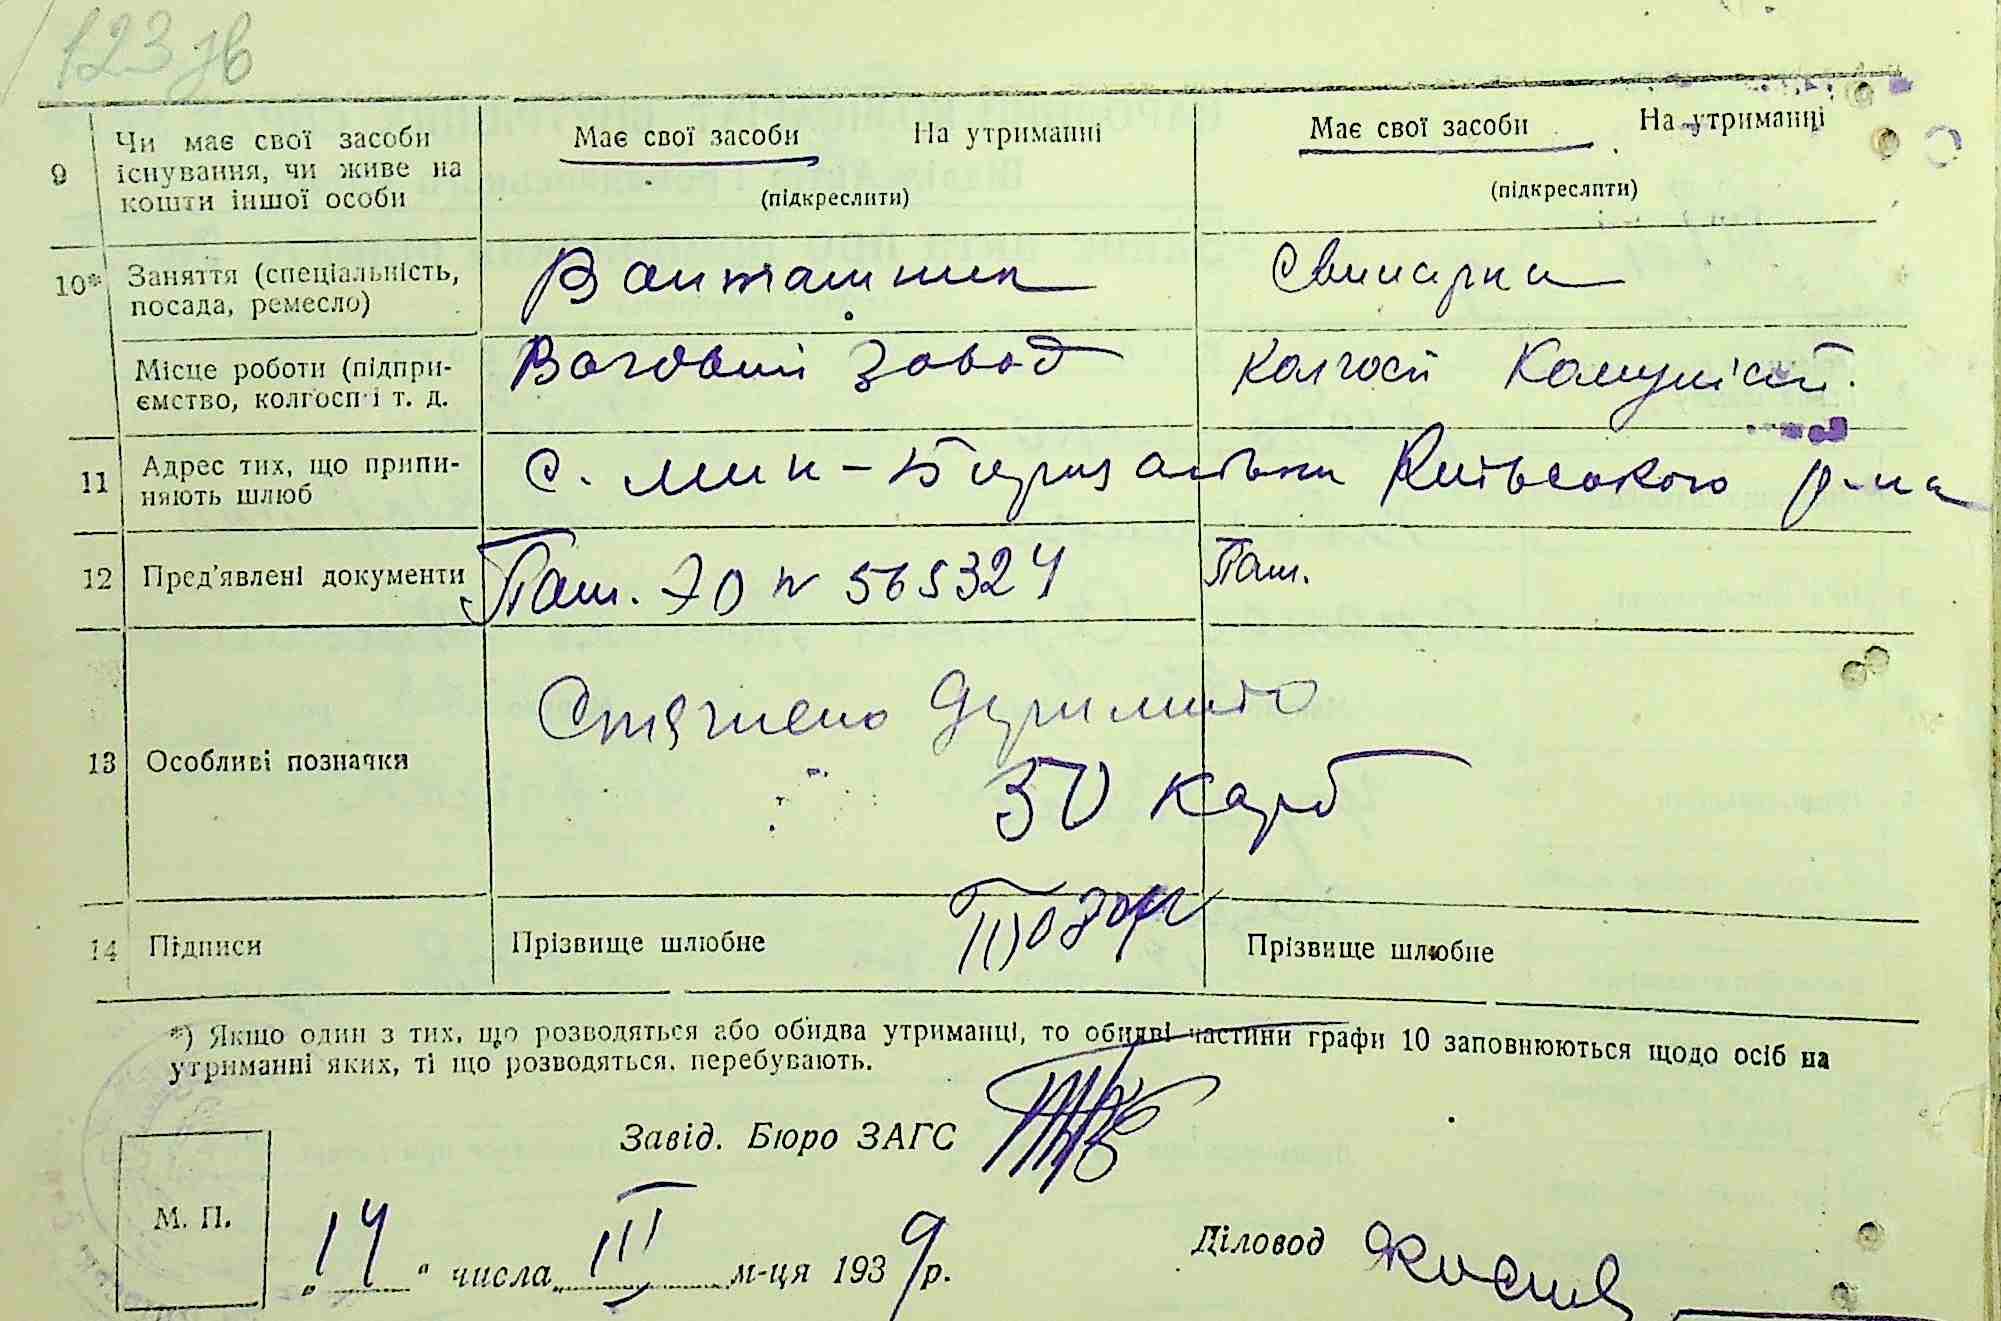 123 зв
9 Чи має свої засоби існування, чи живе на кошти іншої особи
Має свої засоби На утриманні
(підкреслити)
Має свої засоби На утриманні
(підкреслити)
10* Заняття (спеціальність, посада, ремесло)
Ванташник
Свинарка
Місце роботи (підпри-
ємство, колгосп і т. д.
Ваговий завод
Колгосп Комуніст.
11 Адрес тих, що припи-
няють шлюб
с. Мик-Борщагівка Київського р-на
12 Пред'явлені документи
Паш. ЭО № 565324
Паш.
13 Особливі позначки
Стягнено
50 карб
14 Підписи
Прізвище шлюбне
Прізвище шлюбне
*) Якщо один з тих, що розводяться або обидва утриманці, то обидві частини графи 10 заповнюються щодо осіб на
утриманні яких, ті що розводяться, перебувають.
Завід. Бюро ЗАГС
М. П.
„14“ числа III м-ця 1939 р.
Діловод